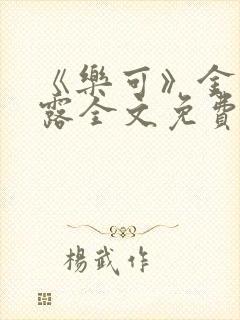 《樂可》金
露全文免費
楊武作